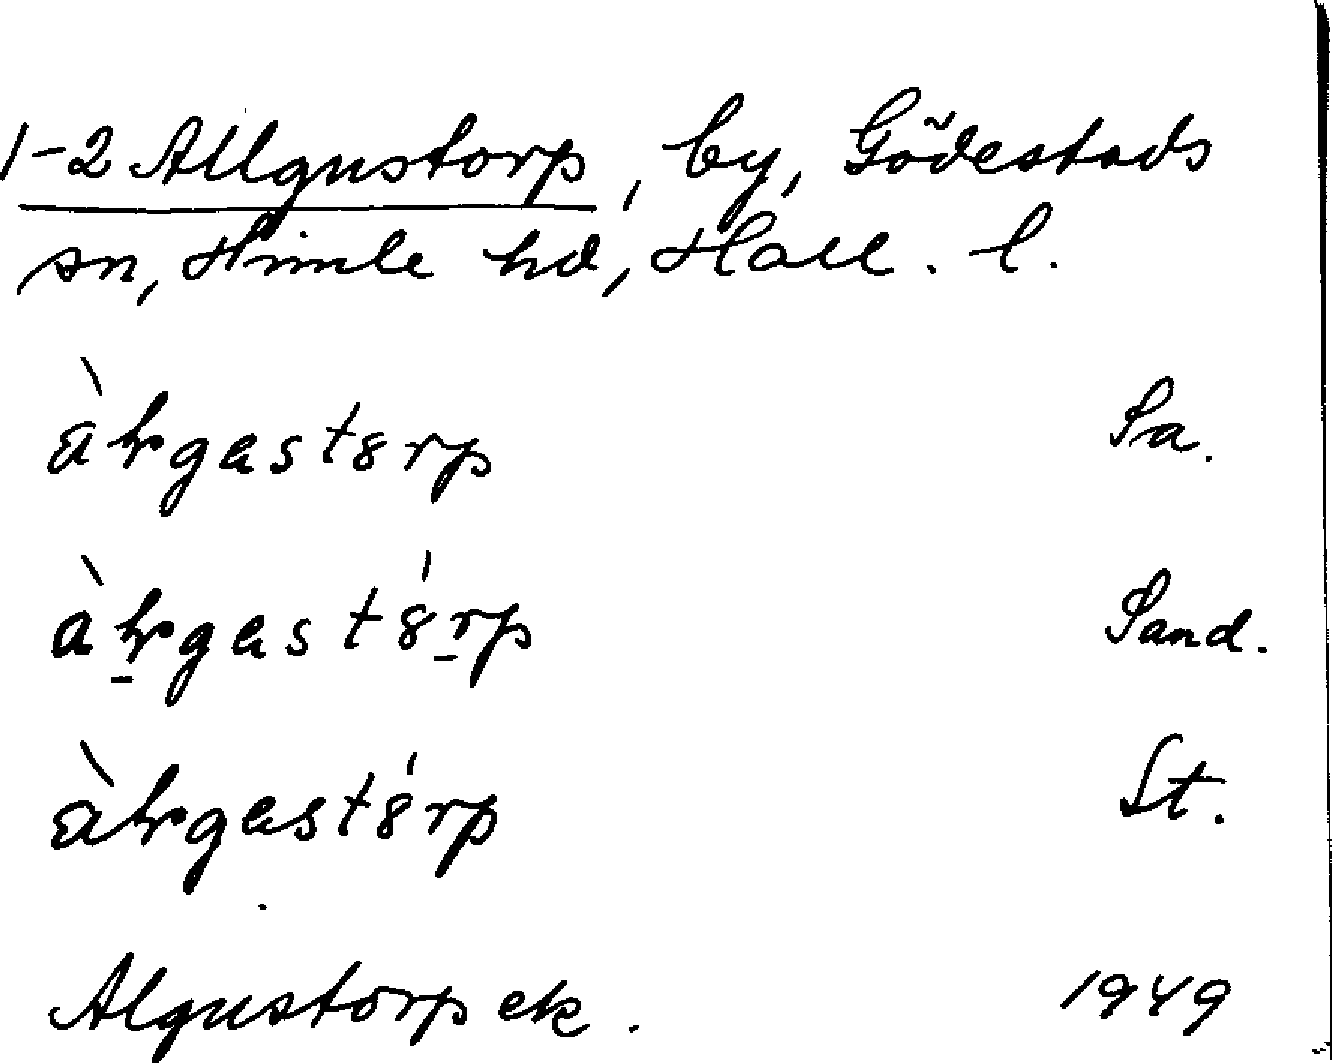 1-2 Allgustorp, by, Gödestads
sn, Himle hd, Hall. l.
Sa.
Sand.
St.
Algustorp ek. 1949